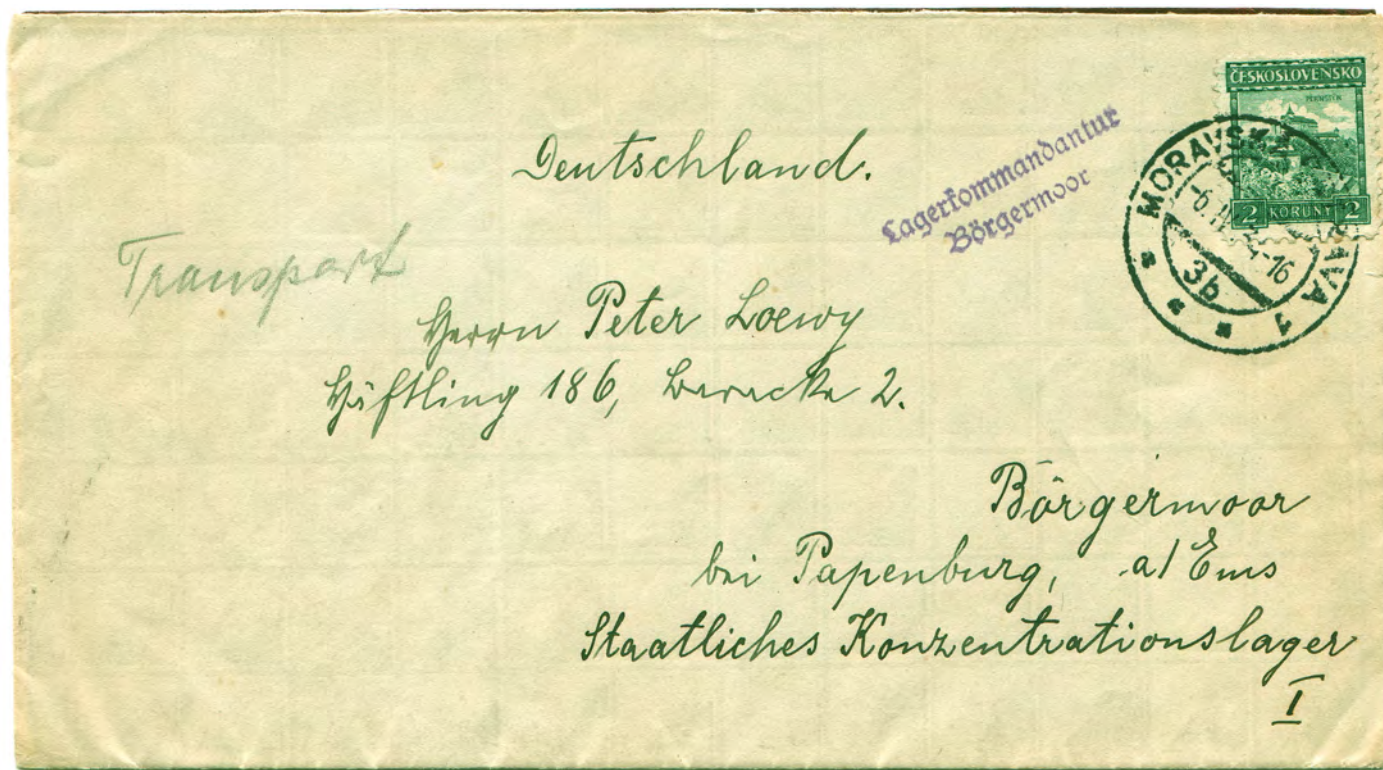 ČESKOSLOVENSKO
PERNŠTEJN
2 KORUNY 2
MORAVSKÁ OSTRAVA 1
3b
Lagerkommandantur
Börgermoor
Deutschland.
Transport
Herrn Peter Loewy
Häftling 186, Baracke 2.
Börgermoor
bei Papenburg, a/Ems
Staatliches Konzentrationslager
I